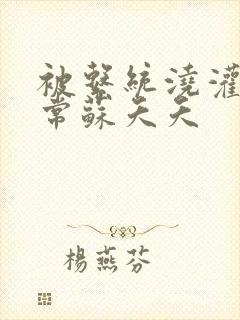 被繫統澆灌
常蘇夭夭
楊燕芬